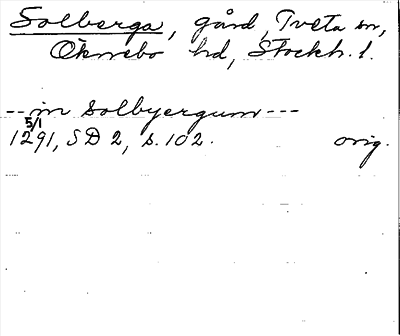 Solberga, gård, Tveta sn,
Öknebo hd, Stockh. l.
-- in Solbyergum ---
5/1
1291, SD 2, s. 102. orig.